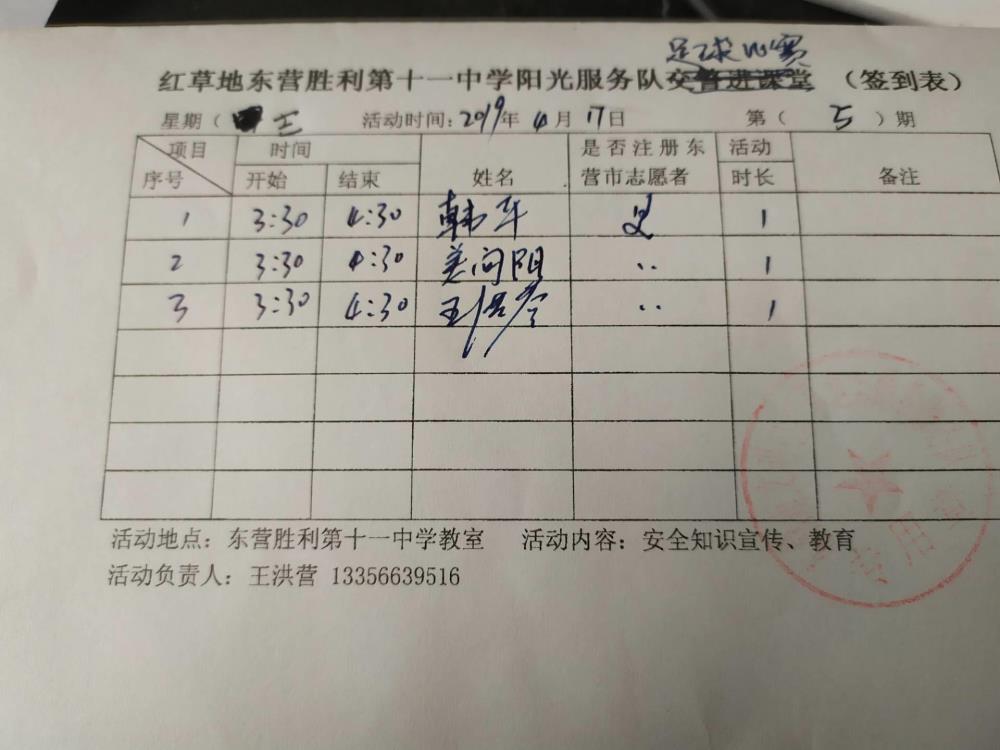 足球比赛
红草地东营胜利第十一中学阳光服务队交警进课堂 （签到表）
星期（ 三 活动时间：2019年 4月 17日 第（ 5 ）期
项目 时间 是否注册东 活动
序号 开始 结束 姓名 营市志愿者 时长 备注
1 3:30 4:30 韩军 是 1
2 3:30 4:30 姜向阳 ‥ 1
3 3:30 4:30 ‥ 1
活动地点：东营胜利第十一中学教室 活动内容：安全知识宣传、教育
活动负责人：王洪营 13356639516